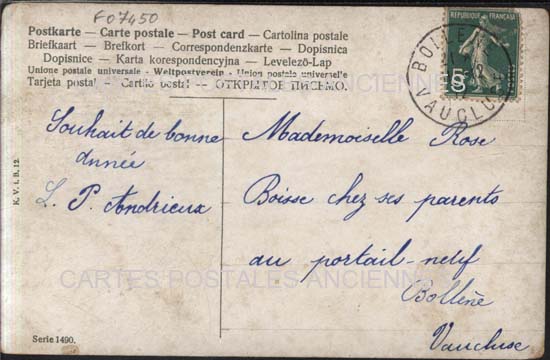 F07450
Postkarte — Carte postale — Post card — Cartolina postale
Briefkaart — Brefkort — Correspondenzkarte — Dopisnica
Dopisnice — Karta korespondencyjna — Levelező-Lap
Unione postale universale - Weltpostverein - Union postale universelle
Tarjeta postal — Cartão postal — ОТКРЫТОЕ ПИСЬМО.
RÉPUBLIQUE FRANÇAISE
5
BOLLÈNE
VAUCLUSE
Souhait de bonne
année
L. P. Andrieux
Mademoiselle Rose
Boisse chez ses parents
au portail-neuf
Bollène
Vaucluse
CARTES POSTALES ANCIENNES
K. V. i. B. 12.
Serie 1490.